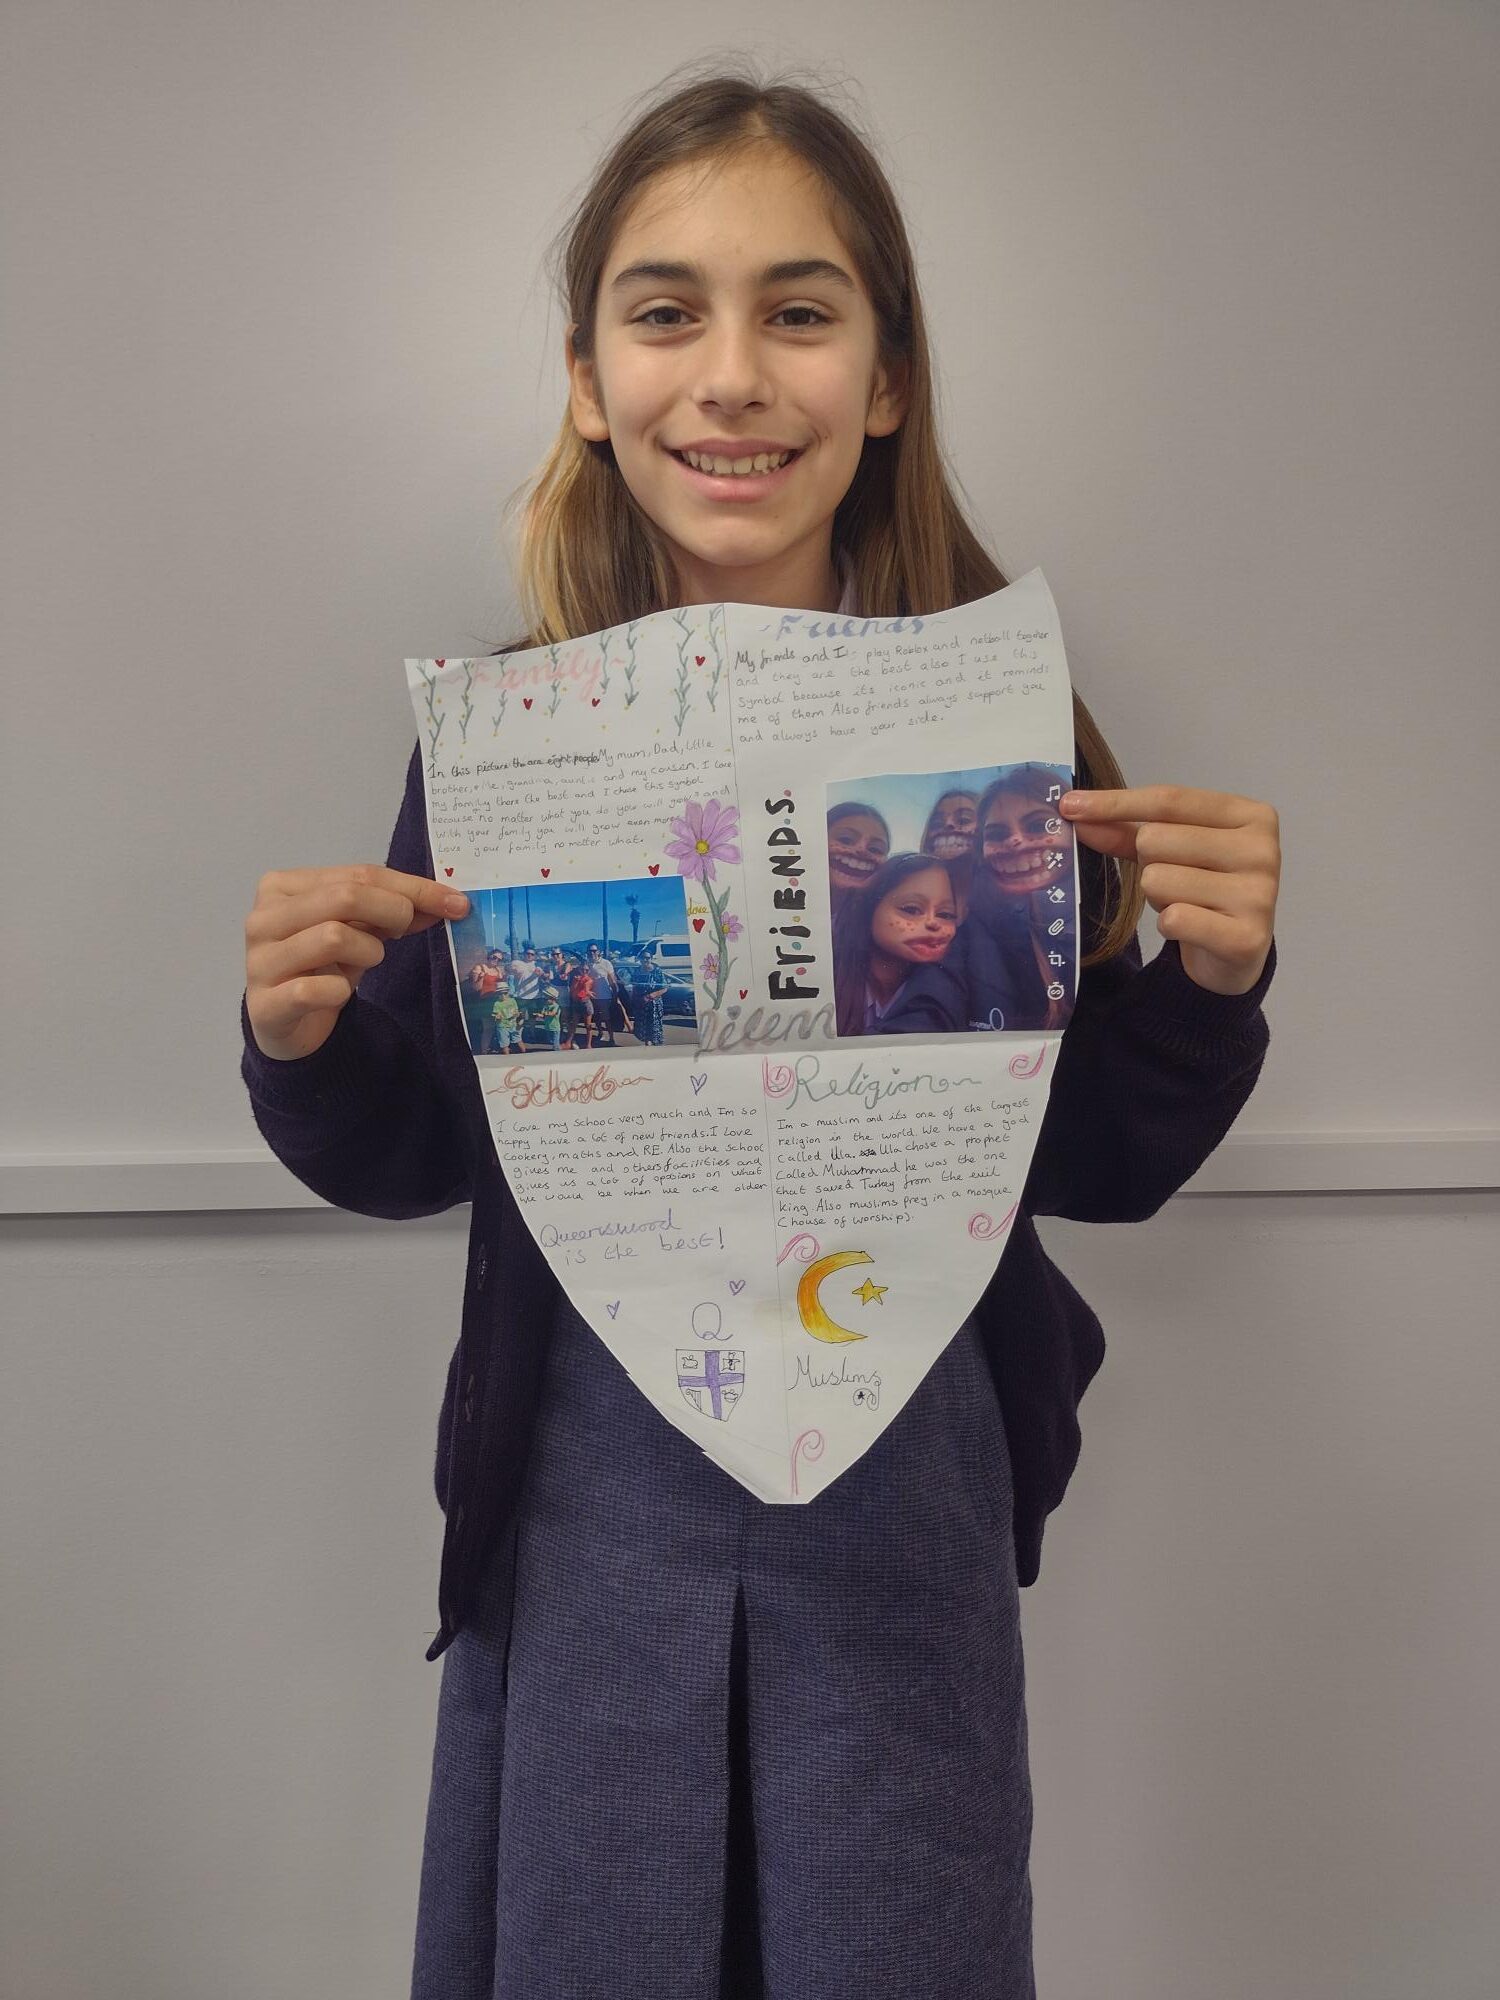 ~Family~
In this picture My mum, Dad, little
brother, grandma, and my cousin. I love
my family there the best and I chose this symbol
because "no matter what you do you will grow" and
with your family you will grow even more.
Love your family no matter what.
love
~Friends~
My friends and I play Roblox and netball together
and they are the best also I use this
symbol because its iconic and it reminds
me of them Also friends always support you
and always have your side.
F.r.i.E.N.D.S.
~School~
I love my school very much and Im so
happy have a lot of new friends. I Love
Cookery, maths and RE. Also the school
gives me and others facilities and
gives us a lot of opsions on what
we would be when we are older
Queenswood
is the best!
Q
Religion~
Im a muslim and its one of the largest
religion in the world. We have a god
called Ula. Ula chose a prophet
Called Muhammad he was the one
that saved Turkey from the evil
king. Also muslims prey in a mosque
(house of worship).
Muslims